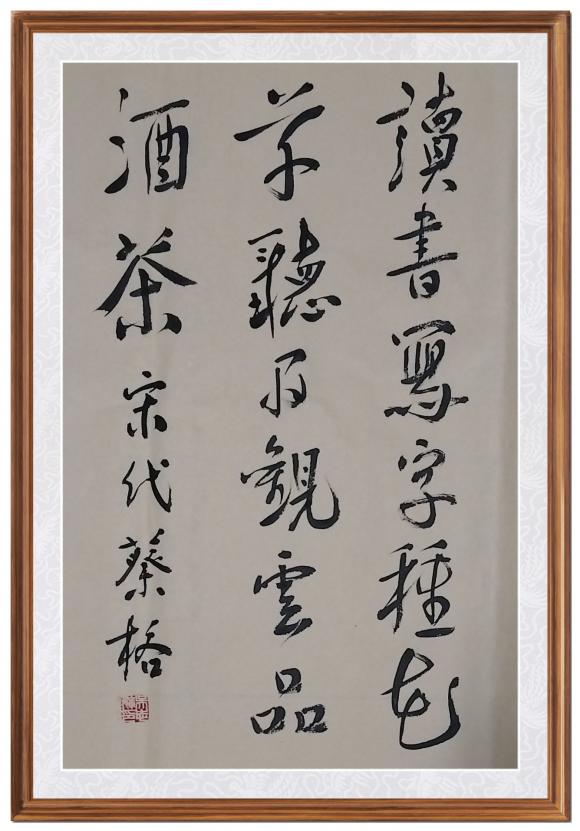 讀書寫字種花
草聽雨觀雲品
酒茶宋代蔡格